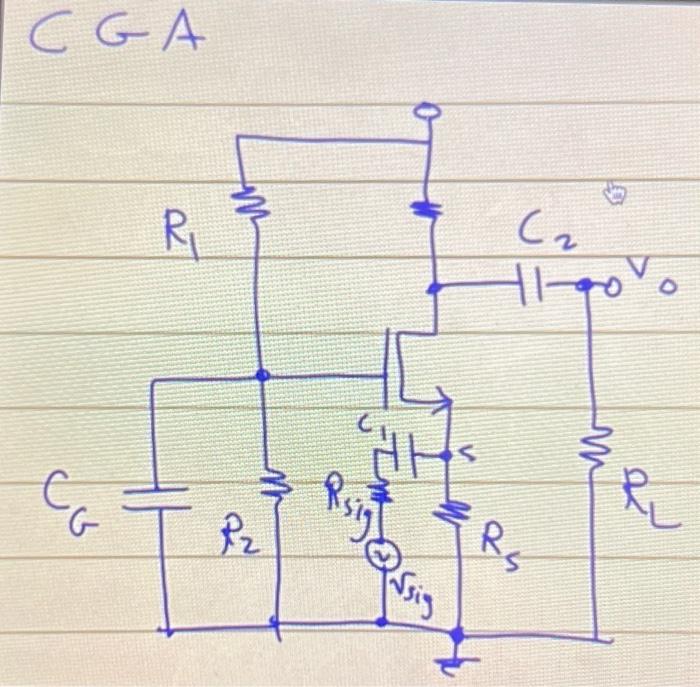 CGA
R1
C2
Vo
C1
S
CG
R2
Rsig
Vsig
RS
RL